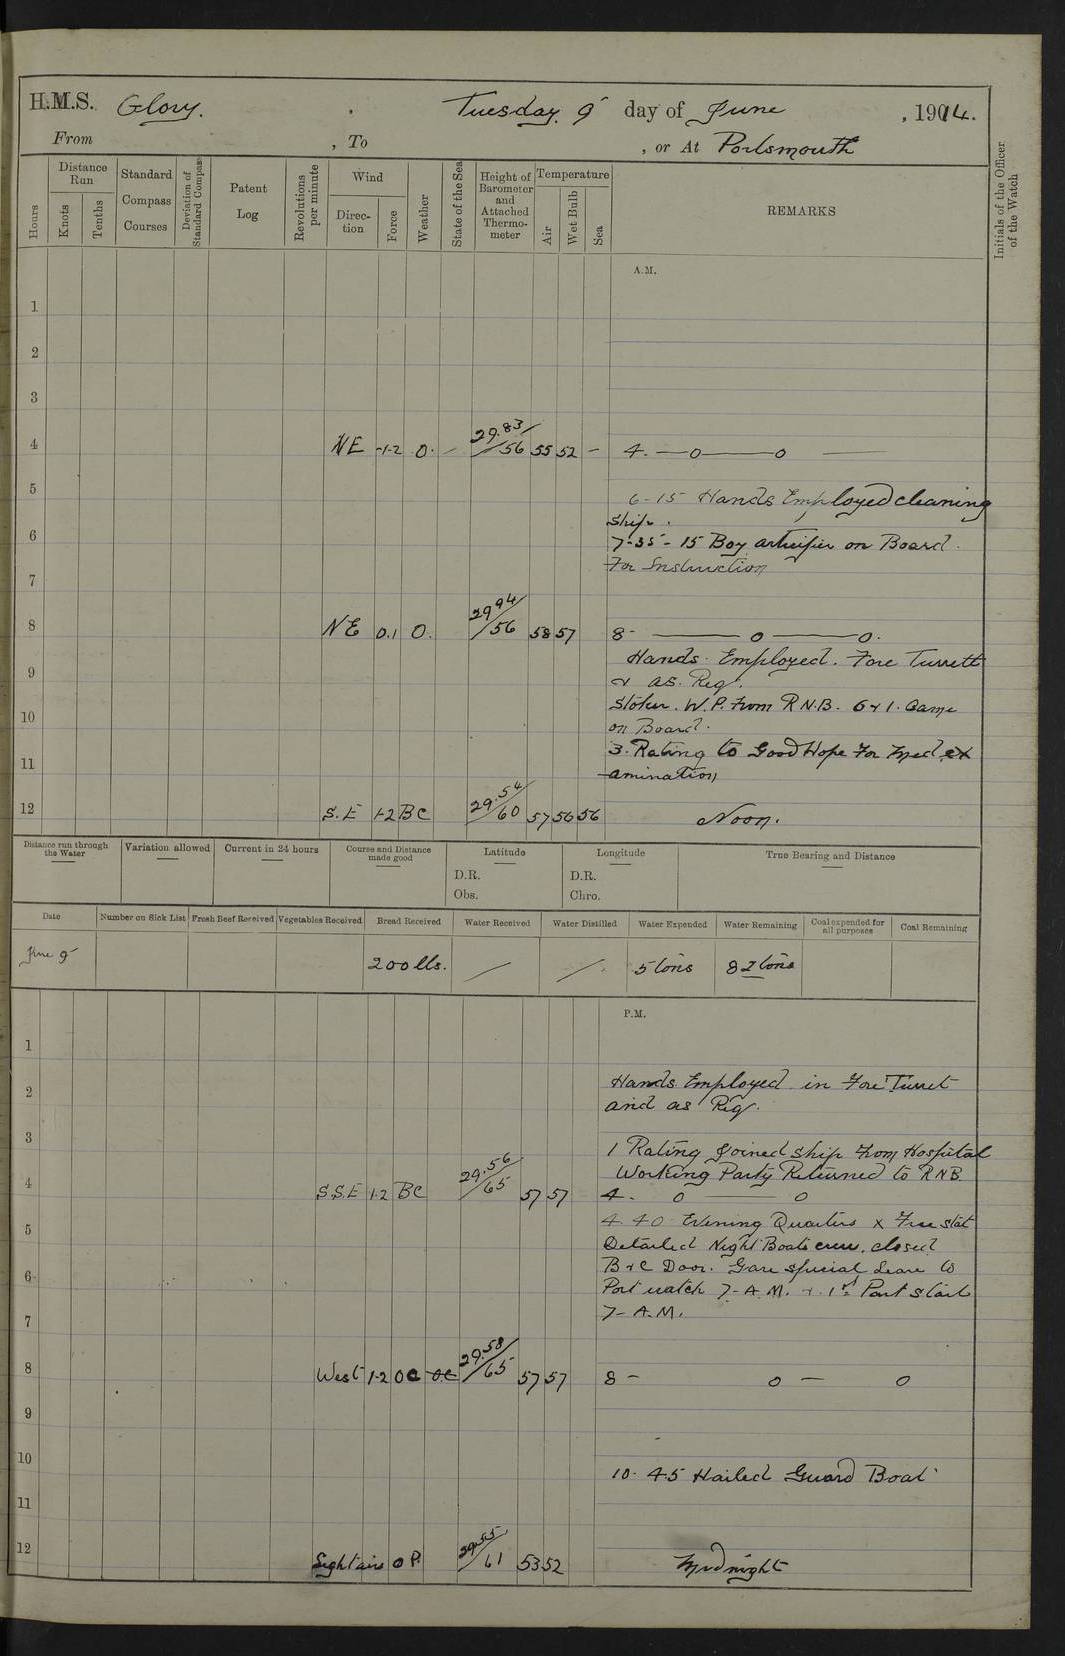 H.M.S. Glory. Tuesday 9 day of June, 1914.
From , To , or At Portsmouth
Hours
Distance Run
Knots
Tenths
Standard Compass Courses
Deviation of Standard Compass
Patent Log
Revolutions per minute
Wind
Direc-tion
Force
Weather
State of the Sea
Height of Barometer and Attached Thermo-meter
Temperature
Air
Wet Bulb
Sea
REMARKS
Initials of the Officer of the Watch
A.M.
1
2
3
4 NE 1-2 O. — 29.83/56 55 52 — 4. —o——o ——
5
6-15 Hands Employed cleaning
ship.
6
7-35 - 15 Boy artificier on Board.
For Instruction
7
8 NE 0.1 O. 29 94/56 58 57 8- —— o —— o.
Hands Employed. Fore Turrett
9
& as. Req.
Stoker. W.P. from R.N.B. 6 & 1. Came
10
on Board.
3. Rating to Good Hope For Med ex
11
amination
12 S.E 1-2 BC 29.54/60 57 56 56 Noon.
Distance run through the Water
Variation allowed
Current in 24 hours
Course and Distance made good
Latitude
D.R.
Obs.
Longitude
D.R.
Chro.
True Bearing and Distance
Date
Number on Sick List
Fresh Beef Received
Vegetables Received
Bread Received
Water Received
Water Distilled
Water Expended
Water Remaining
Coal expended for all purposes
Coal Remaining
June 9 200 lls. / / 5 tons 82 tons
P.M.
1
Hands Employed in Fore Turret
2
and as Req.
3
1 Rating Joined ship from Hospital
Working Party Returned to R.N.B.
4 S.S.E 1-2 BC 29.56/65 57 57 4. o —— o
4.40 Evening Quarters x Free Stat
5
Detailed Night Boats crew. closed
B & C Door. Gave special Leave to
6
Port watch 7-A.M. & 1st Part Starb
7-A.M.
7
8 West 1-2 OC OC 29.58/65 57 57 8 - o — o
9
10
10.45 Hailed Guard Boat
11
12 Light airs O P. 29.55/61 53 52 Midnight